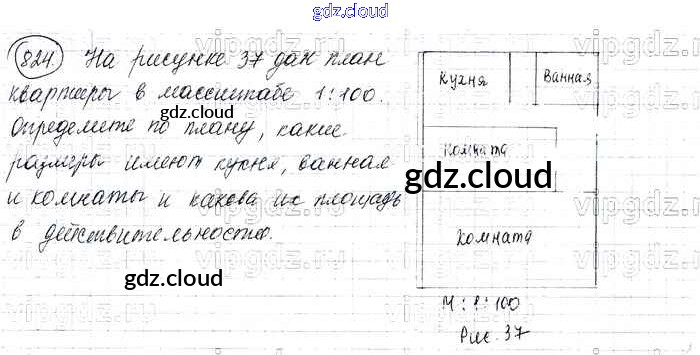 gdz.cloud
824. На рисунке 37 дан план
квартиры в масштабе 1:100.
gdz.cloud
Определите по плану, какие
размеры имеют кухня, ванная
и комнаты и какова их площадь
в действительности.
gdz.cloud
Кухня
Ванная
Комната
gdz.cloud
Комната
М : 1 : 100
Рис. 37